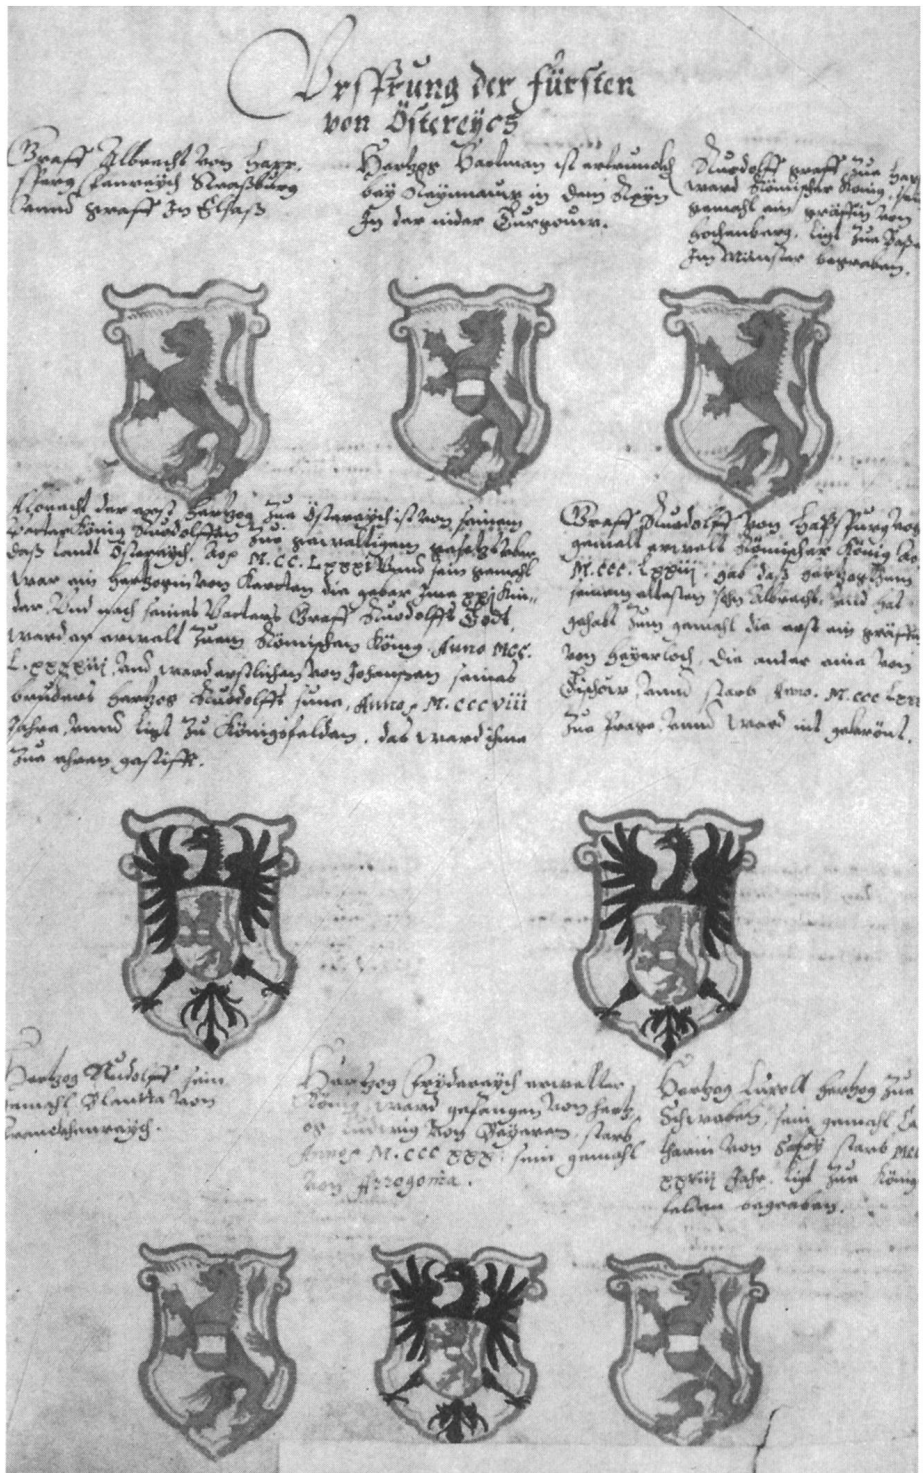 Ursprung der fürsten
von Östereychs
Graff Albrecht von Haps,
spurg Straßburg
vnnd graff Im Elsaß
Hertzog Hartman ist ertrunckh
bey Reynnauw in dem Reyn
In der nider Turgouw.
Ruodolff graff Zue Hap
ward Römischer König, sein
gemahl ein gräffin von
Hochenberg, ligt Zue Baß
Im Münster begraben.
Albrecht der erst Hertzog Zue Östereÿch ist von seinem
Vatter König Ruodolffen Zue gesetzt
daß Landt Östereÿch, M.CC.LXXXI Vnnd sein gemahl
war ein Hertzogin von Kernten die gebar Ime xxj Kin,,
der, Vnd nach seines Vatters Graff Ruodolffs Todt,
ward er erwelt Zuem Römischen König Anno MCC.
L.xxxxiij, vnd ward erstlichen von Johansen seines
bruders Hertzog Ruodolffs suns, Anno M.cccviii
Jahrs, vnnd ligt Zu Königsfelden, das ward ihme
Zue ehren gestifft.
Graff Ruodolff von Habspurg
gemelt erwelt Römischer König
M.CCC.Lxxiij, gab daß Hertzogthum
seinem eltesten sohn Albrecht, vnd hat
gehebt Zum gemahl die erst ein gräffin
von Heyerloch, die ander eine von
vnnd starb Anno. M.CCC
Zue vnnd ward nit gekrönt.
Hertzog Rudolff sein
gemahl Blantta von
Franckhenreych.
Hertzog Frydereych erwelter
König, ward gefangen von Hertz,
og Ludwig von Beyeren, starb
Anno M.CCC XXX, sein gemahl
von Arrogonia.
Hertzog Lupolt Hertzog Zue
Schwaben, sein gemahl Ca
tharin von Safoy starb
xxviij Jahr. ligt Zue König
felden begraben.